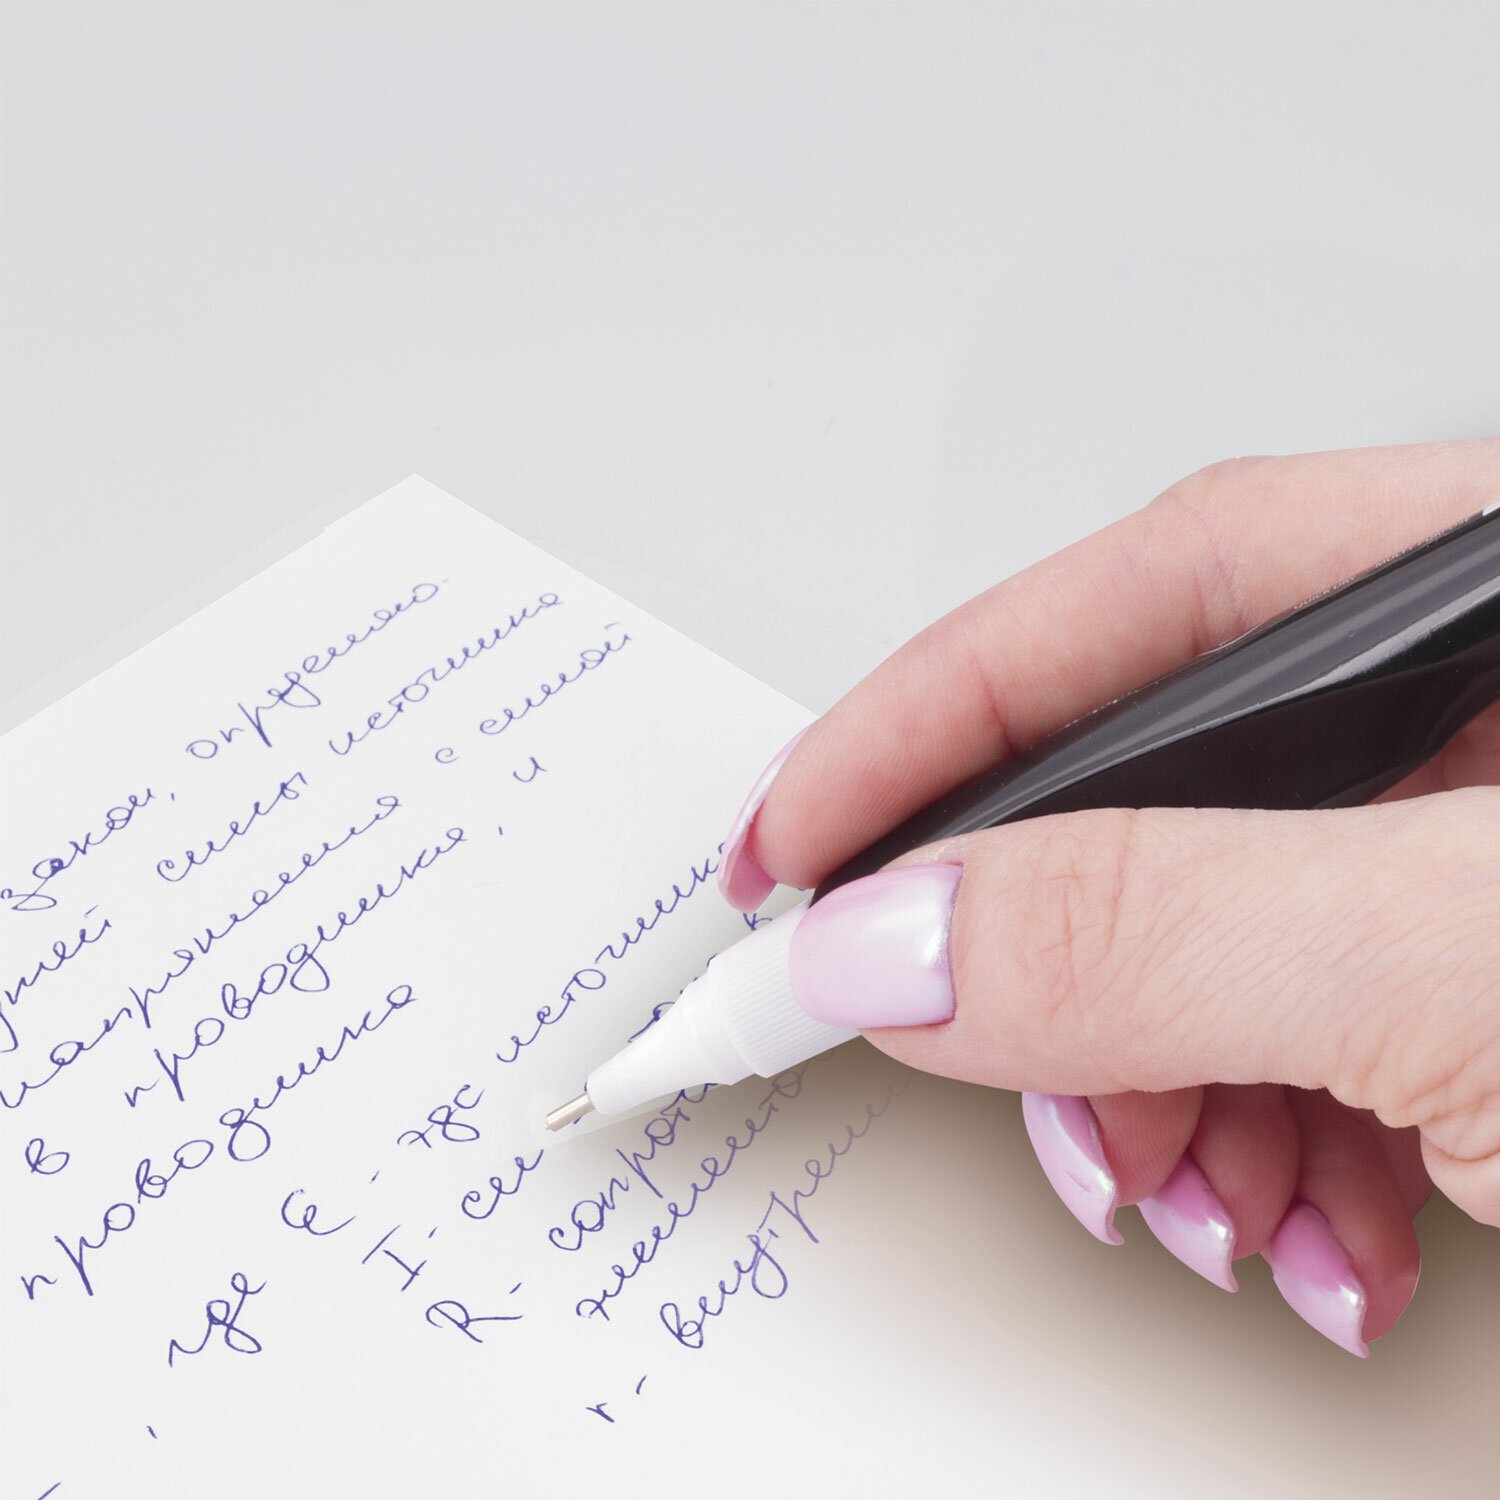 закон, определяю
щей силы источника
напряжения с силой
в проводнике, и
проводника
, где Є - эдс источника
I - си
R - сопроти
элемento
r - внутрен